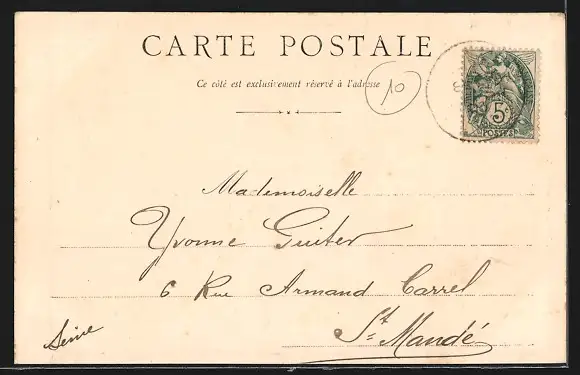 CARTE POSTALE
Ce côté est exclusivement réservé à l'adresse
10
5c
POSTES
Mademoiselle
Yvonne Guiter
6 Rue Armand Carrel
St Mandé
Seine